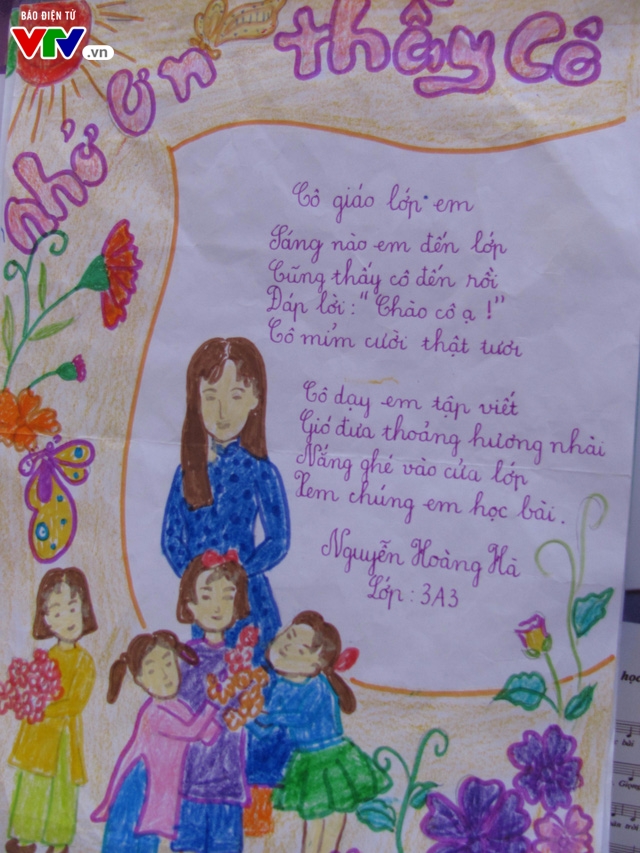 BÁO ĐIỆN TỬ
VTV.vn
nhớ ơn thầy cô
Cô giáo lớp em
Sáng nào em đến lớp
Cũng thấy cô đến rồi
Đáp lời: "Chào cô ạ!"
Cô mỉm cười thật tươi
Cô dạy em tập viết
Gió đưa thoảng hương nhài
Nắng ghé vào cửa lớp
Xem chúng em học bài.
Nguyễn Hoàng Hà
Lớp: 3A3
học
bài
Giọng